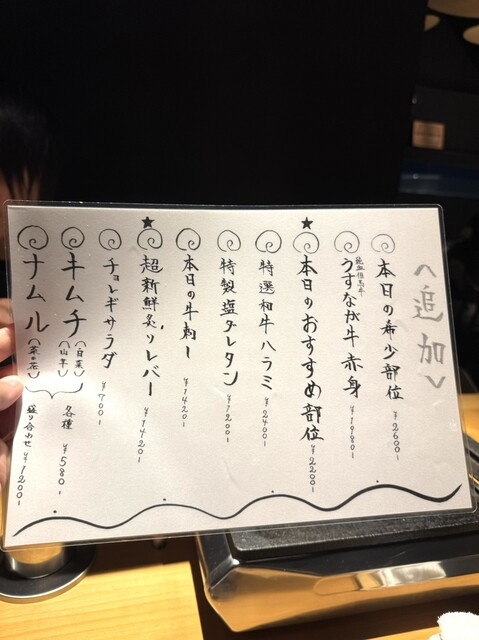 〈追加〉
本日の希少部位 ¥2600-
うすなが牛 赤身 ¥1980-
★本日のおすすめ部位 ¥2200-
特選和牛ハラミ ¥2400-
特製塩ダレタン ¥1200-
本日の牛刺し ¥1420-
★超新鮮炙りレバー ¥1420-
チョレギサラダ ¥700-
キムチ (白菜)(山芋)
ナムル (菜の花)
各種 ¥580-
盛り合わせ ¥1200-